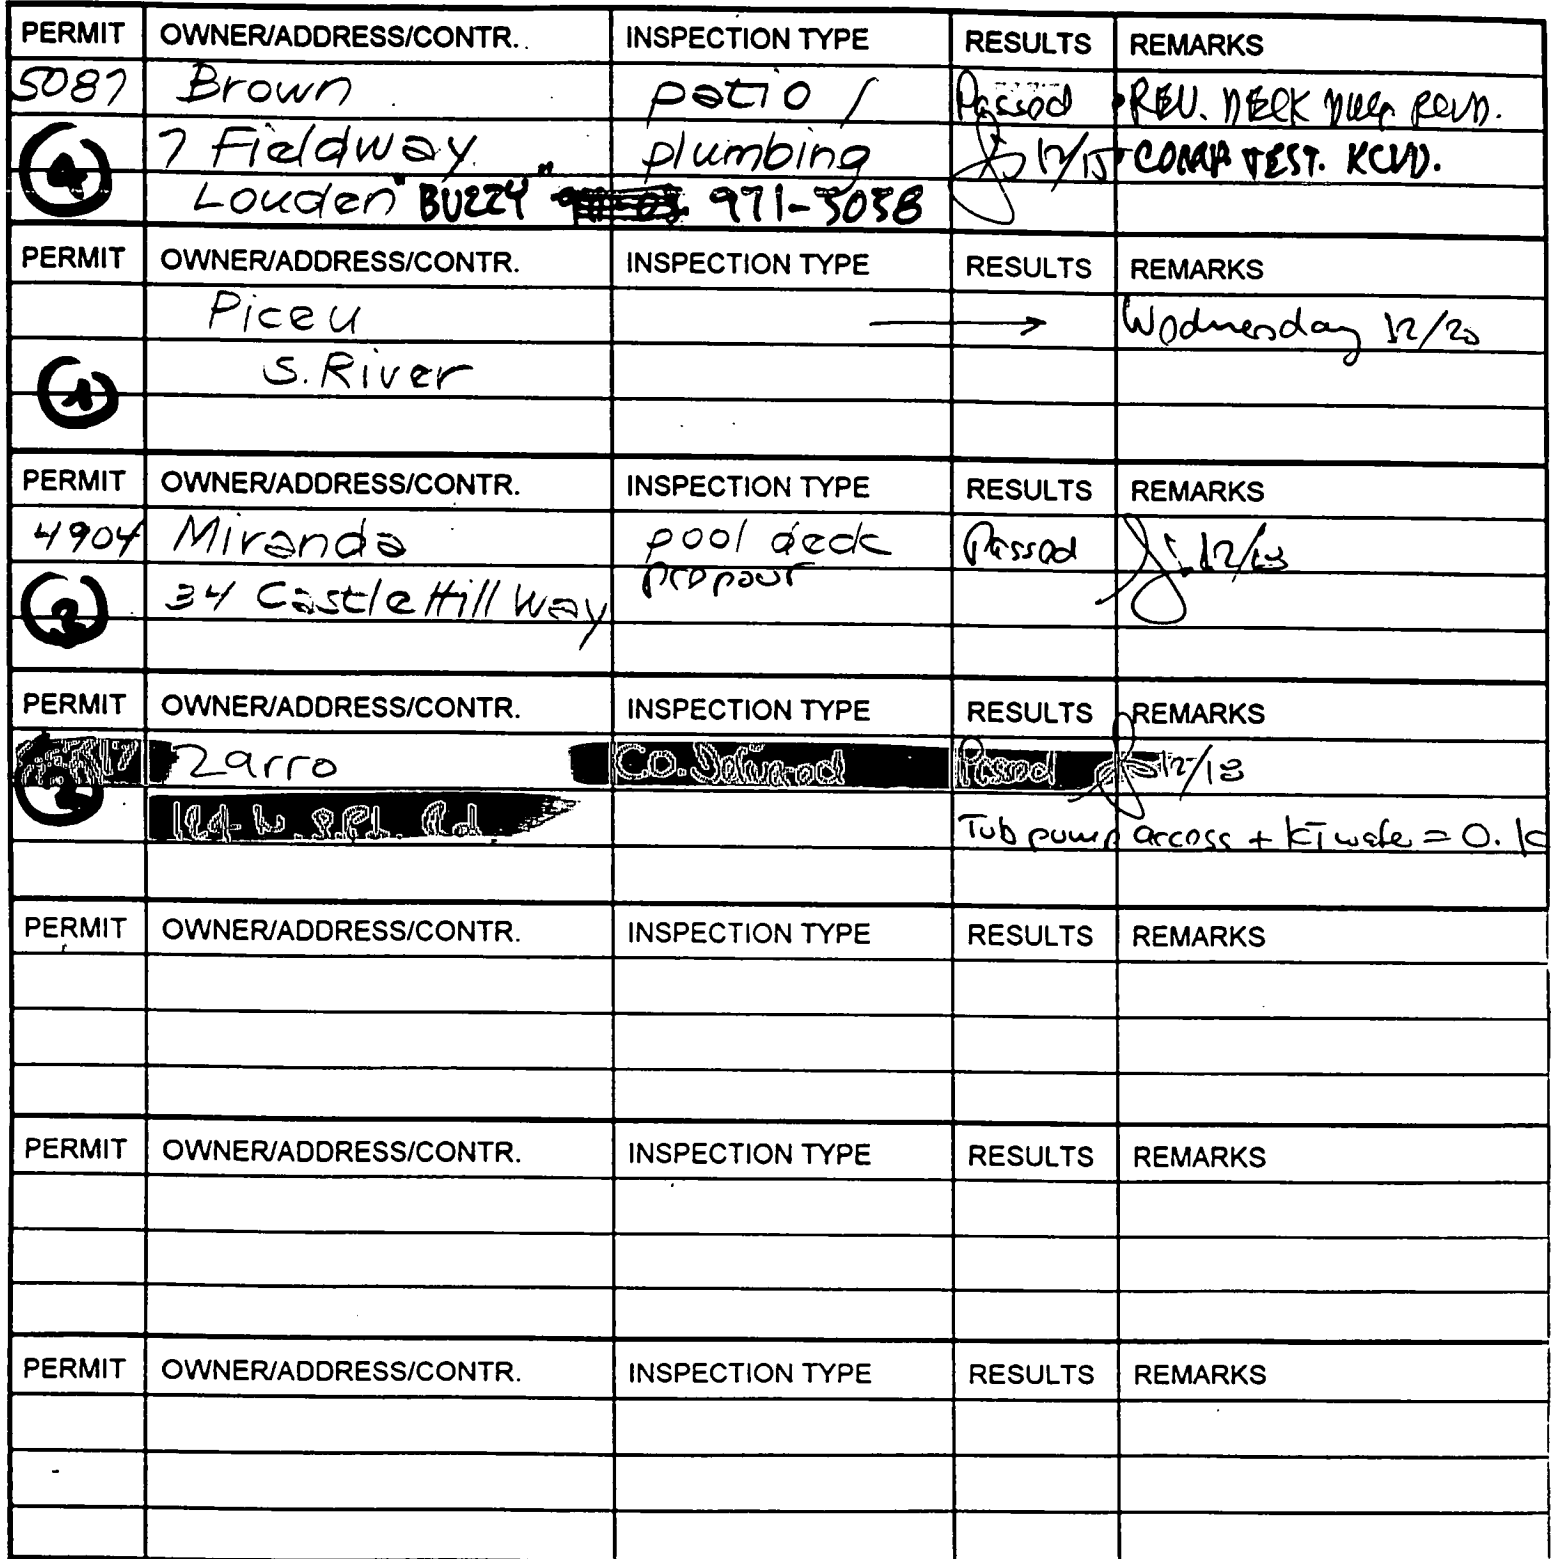 PERMIT OWNER/ADDRESS/CONTR. INSPECTION TYPE RESULTS REMARKS
5087 Brown patio / Passed REV. DECK DWG. RCVD.
4 7 Fieldway plumbing 12/15 COMP TEST. RCVD.
Louden "BUZZY" 971-5038
PERMIT OWNER/ADDRESS/CONTR. INSPECTION TYPE RESULTS REMARKS
Piceu → Wednesday 12/20
1 S. River
PERMIT OWNER/ADDRESS/CONTR. INSPECTION TYPE RESULTS REMARKS
4904 Miranda pool deck Passed 12/18
3 34 Castle Hill Way prepour
PERMIT OWNER/ADDRESS/CONTR. INSPECTION TYPE RESULTS REMARKS
Zarro C.O. Passed 12/18
2 Rd.
Tub pump access + = O.K
PERMIT OWNER/ADDRESS/CONTR. INSPECTION TYPE RESULTS REMARKS
PERMIT OWNER/ADDRESS/CONTR. INSPECTION TYPE RESULTS REMARKS
PERMIT OWNER/ADDRESS/CONTR. INSPECTION TYPE RESULTS REMARKS